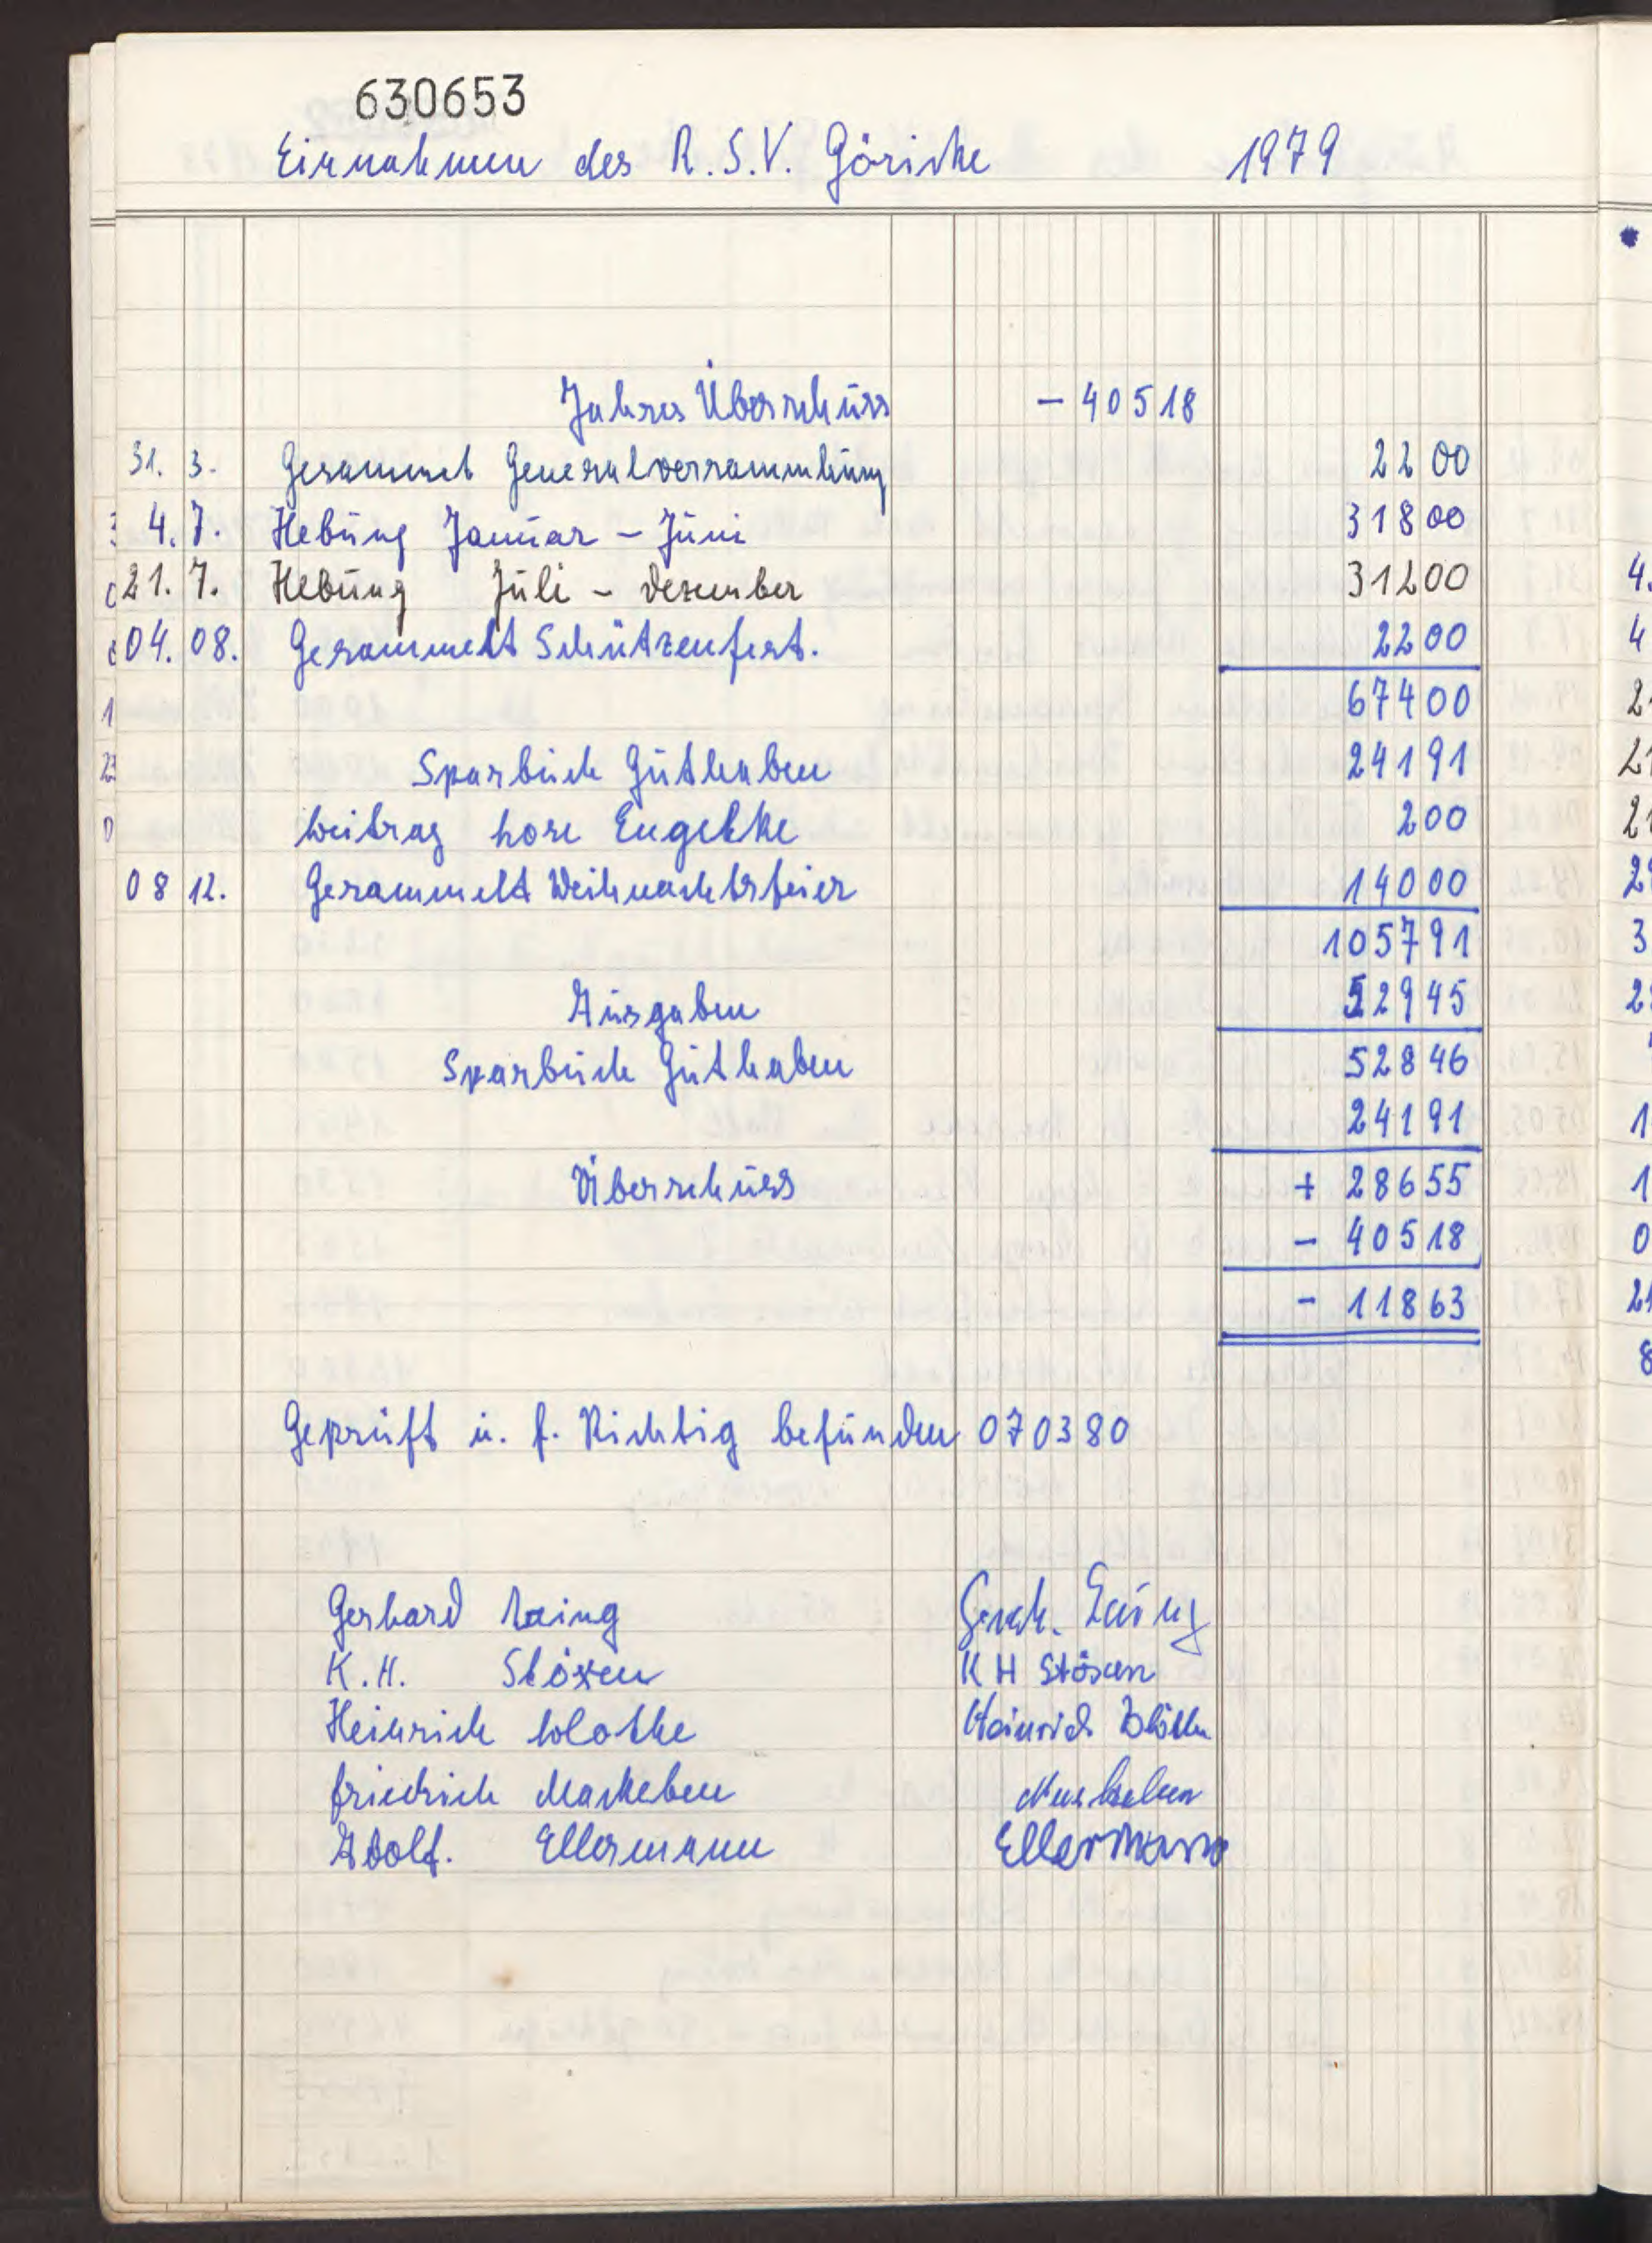 630653
Einnahmen des R.S.V. Göricke 1979
Jahres Überschuss - 40518
31. 3. Gesammet Generalversammlung 2200
4. 7. Hebung Januar - Juni 31800
21. 7. Hebung Juli - Dezember 31200
04. 08. Gesammelt Schützenfest. 2200
67400
Sparbuch Guthaben 24191
Beitrag Engelke 200
08 12. Gesammelt Weihnachtsfeier 14000
105791
Ausgaben 52945
Sparbuch Guthaben 52846
24191
Überschuss + 28655
- 40518
- 11863
Geprüft u. f. Richtig befunden 070380
Gerhard
K.H. Stöxen KH Stöxen
Heinrich Heinrich
Friedrich Maskeben Maskeben
Adolf. Ellermann Ellermann